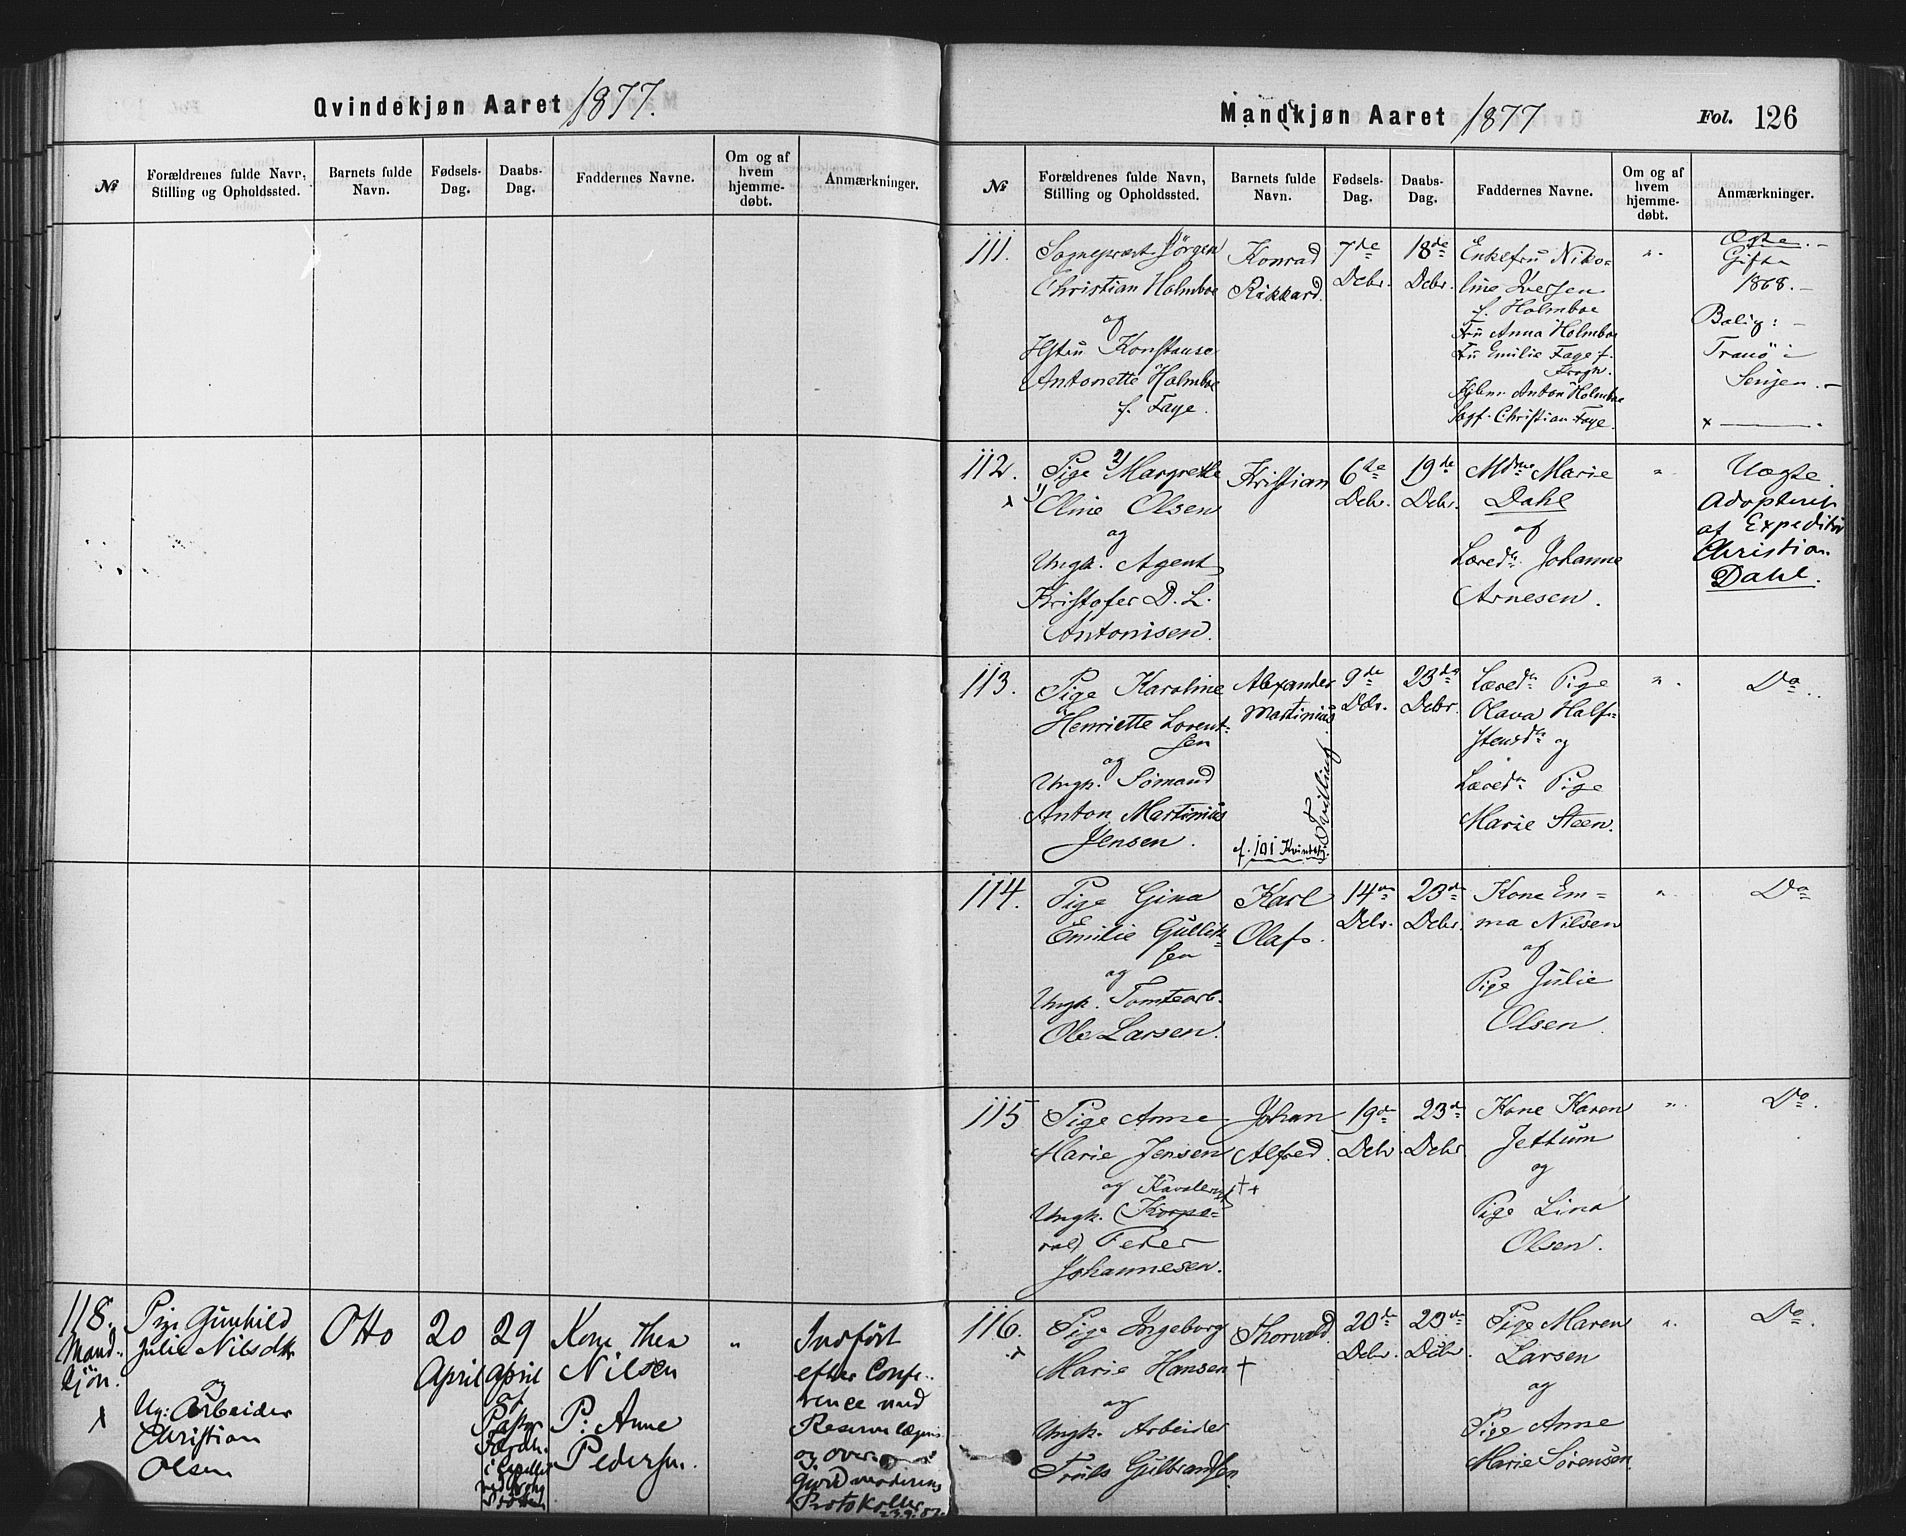 Qvindekjøn Aaret 1877.
№
Forældrenes fulde Navn, Stilling og Opholdssted.
Barnets fulde Navn.
Fødsels-Dag.
Daabs-Dag.
Faddernes Navne.
Om og af hvem hjemme-døbt.
Anmærkninger.
118.
Mand-
kjön.
x
Pige Gunhild
Julie Nilsdtr
og
Arbeider
Christian
Olsen
Otto
20
April
29
April
af
Pastor
Kone Thea
Nilsen
P: Anne
Pedersen.
"
Indført
efter Confe-
rence med
og over
Protokoller
Mandkjøn Aaret 1877
Fol. 126
№
Forældrenes fulde Navn, Stilling og Opholdssted.
Barnets fulde Navn.
Fødsels-Dag.
Daabs-Dag.
Faddernes Navne.
Om og af hvem hjemme-døbt.
Anmærkninger.
111.
Sognepræst Jörgen
Christian Holmboe
og
Hstru Konstanse
Antonette Holmboe
f. Faye.
Konrad
Rikkard.
7de
Decbr.
18de
Decbr.
Enkefru Niko-
line Iversen
f. Holmboe
Fru Anna Holmboe
Fru Emilie Faye f.
Krogh.
Anton Holmboe
Sagf. Christian Faye.
"
Ægte. -
Gifte
1868. -
Bolig: -
Tranö i
Senjen. -
x
112.
x
Pige 2) Margrethe
1) Oline Olsen
og
Ungk. Agent
Kristofer D. L.
Antonisen.
Kristian
6te
Decbr.
19de
Decbr.
Mdme Marie
Dahl
og
Læred. Johanne
Arnesen.
"
Uægte
Adopteret
af Expeditør
Christian
Dahl.
113.
Pige Karoline
Henriette Lorent-
sen
og
Ungk. Sömand
Anton Martinius
Jensen.
Alexander
Martinius
Tvilling.
cf. 101 Kvindekj.
9de
Decbr.
23de
Decbr.
Læred. Pige
Olava Half-
stensd. og
Læred. Pige
Marie Steen.
"
Do.
114.
Pige Gina
Emilie Gullik-
sen
og
Ungk. Tomtearb.
Ole Larsen.
Karl
Olaf.
14de
Decbr.
23de
Decbr.
Kone Em-
ma Nilsen
og
Pige Julie
Olsen.
"
Do
115
Pige Anne
Marie Jensen
og Kavalerist
Ungk. (Korpo-
ral) Peder
Johannesen.
Johan
Alfred.
†+
19de
Decbr.
23de
Decbr.
Kone Karen
Jettum
og
Pige Lina
Olsen.
"
Do.
116.
x
Pige Ingeborg
Marie Hansen
og
Ungk. Arbeider
Truls Gulbrandsen.
Thorvald.
†
20de
Decbr.
23de
Decbr.
Pige Maren
Larsen
og
Pige Anne
Marie Sörensen.
"
Do.